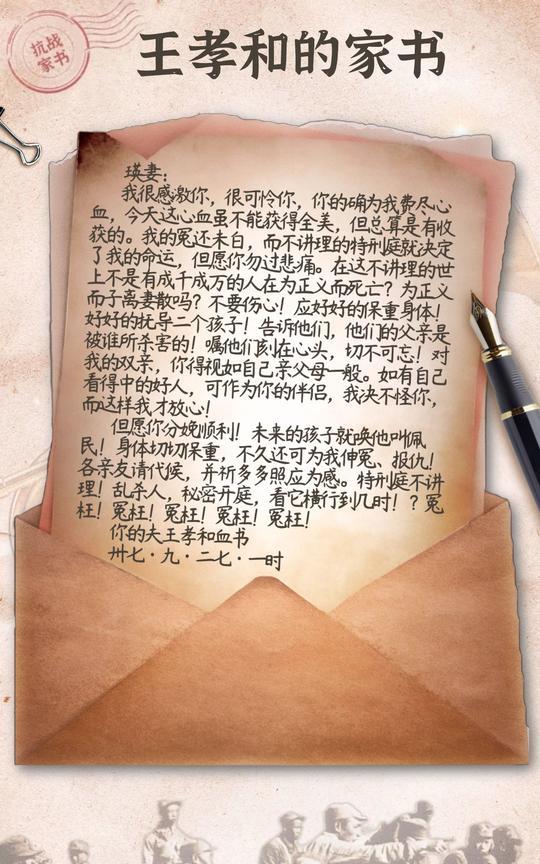 抗战
家书
王孝和的家书
瑛妻：
我很感激你，很可怜你，你的确为我费尽心
血，今天这心血虽不能获得全美，但总算是有收
获的。我的冤还未白，而不讲理的特刑庭就决定
了我的命运，但愿你勿过悲痛。在这不讲理的世
上不是有成千成万的人在为正义而死亡？为正义
而子离妻散吗？不要伤心！应好好的保重身体！
好好的抚导二个孩子！告诉他们，他们的父亲是
被谁所杀害的！嘱他们刻在心头，切不可忘！对
我的双亲，你得视如自己亲父母一般。如有自己
看得中的好人，可作为你的伴侣，我决不怪你，
而这样我才放心！
但愿你分娩顺利！未来的孩子就唤他叫佩
民！身体切切保重，不久还可为我伸冤、报仇！
各亲友请代候，并祈多多照应为感。特刑庭不讲
理！乱杀人，秘密开庭，看它横行到几时！？冤
枉！冤枉！冤枉！冤枉！冤枉！
你的夫王孝和血书
卅七·九·二七·一时